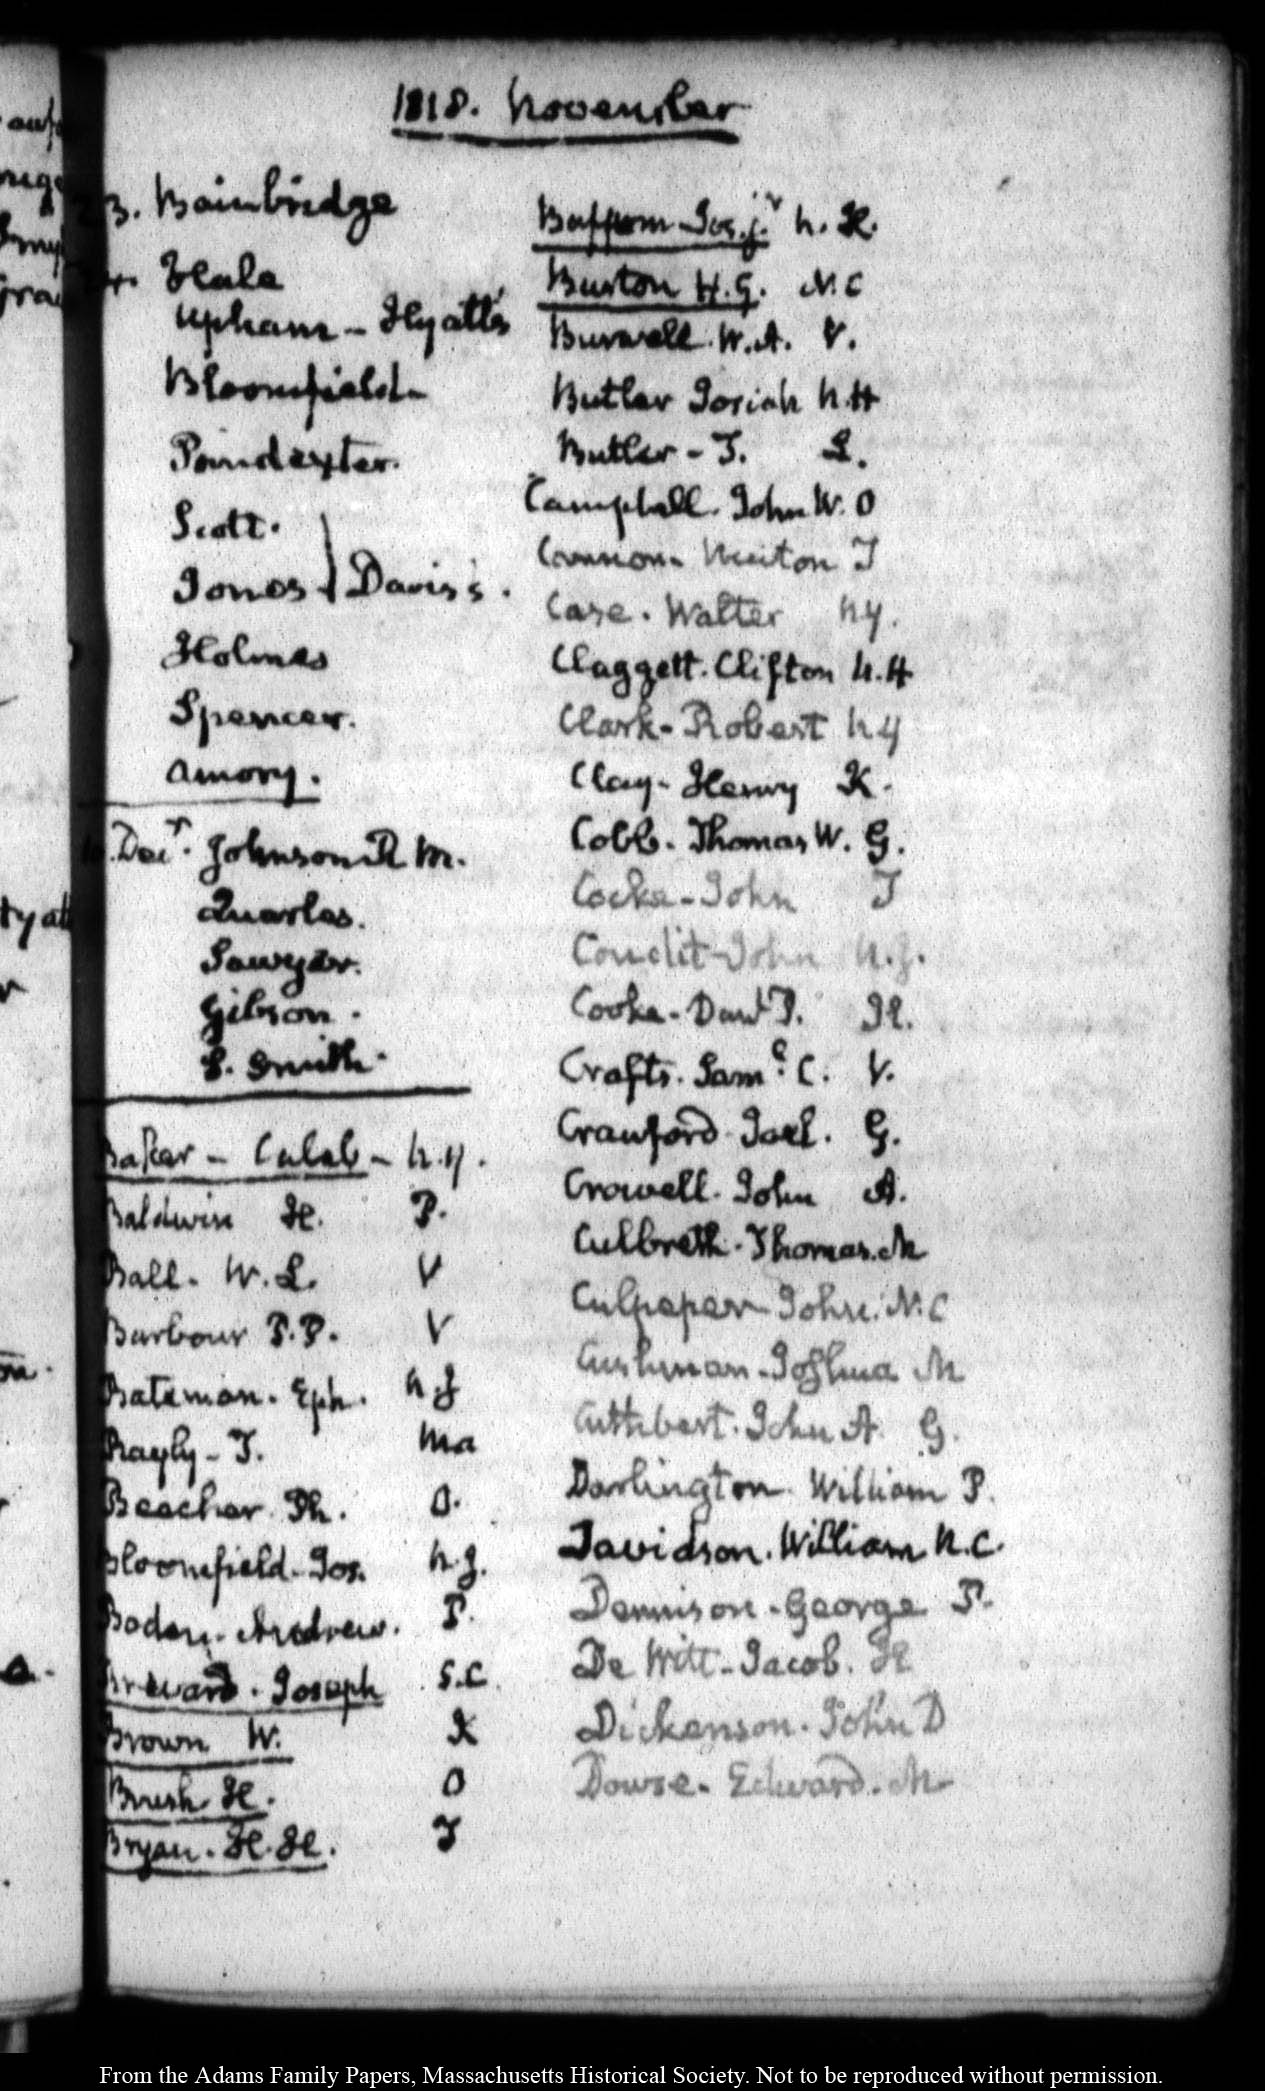 1818. November
23. Bainbridge
24. Hale
Upham - Hyatt's
Bloomfield
Poindexter.
Scott.
Jones } Davis's.
Holmes
Spencer.
Amory.
Decr. Johnson R M.
Quarles.
Sawyer.
Gibson.
S. Smith.
Baker - Caleb - N.Y.
Baldwin H. P.
Ball. W. L. V
Barbour P. P. V
Bateman. Eph. N.J
Bayly - T. Ma
Beecher Ph. O.
Bloomfield. Jos. N.J.
Boden. Andrew. P.
Brevard. Joseph S.C
Brown W. K
Brush H. O
Bryan. H. H. T
Buffum Jos. jr N. H.
Burton H. G. N. C
Burwell. W. A. V.
Butler Josiah N.H
Butler - T. L.
Campbell. John W. O
Cannon. Newton T
Case. Walter N Y.
Claggett. Clifton N. H
Clark - Robert N Y
Clay - Henry K.
Cobb. Thomas W. G.
Cocke - John T
Condit - John N. J.
Cooke - Danl P. Il.
Crafts. Saml C. V.
Crawford Joel. G.
Crowell. John A.
Culbreth. Thomas. M
Culpeper John. N. C
Cushman - Joshua M
Cuthbert. John A G.
Darlington William P.
Davidson. William N. C.
Dennison - George P.
De Witt - Jacob.
Dickenson. John D
Dowse - Edward. M
From the Adams Family Papers, Massachusetts Historical Society. Not to be reproduced without permission.